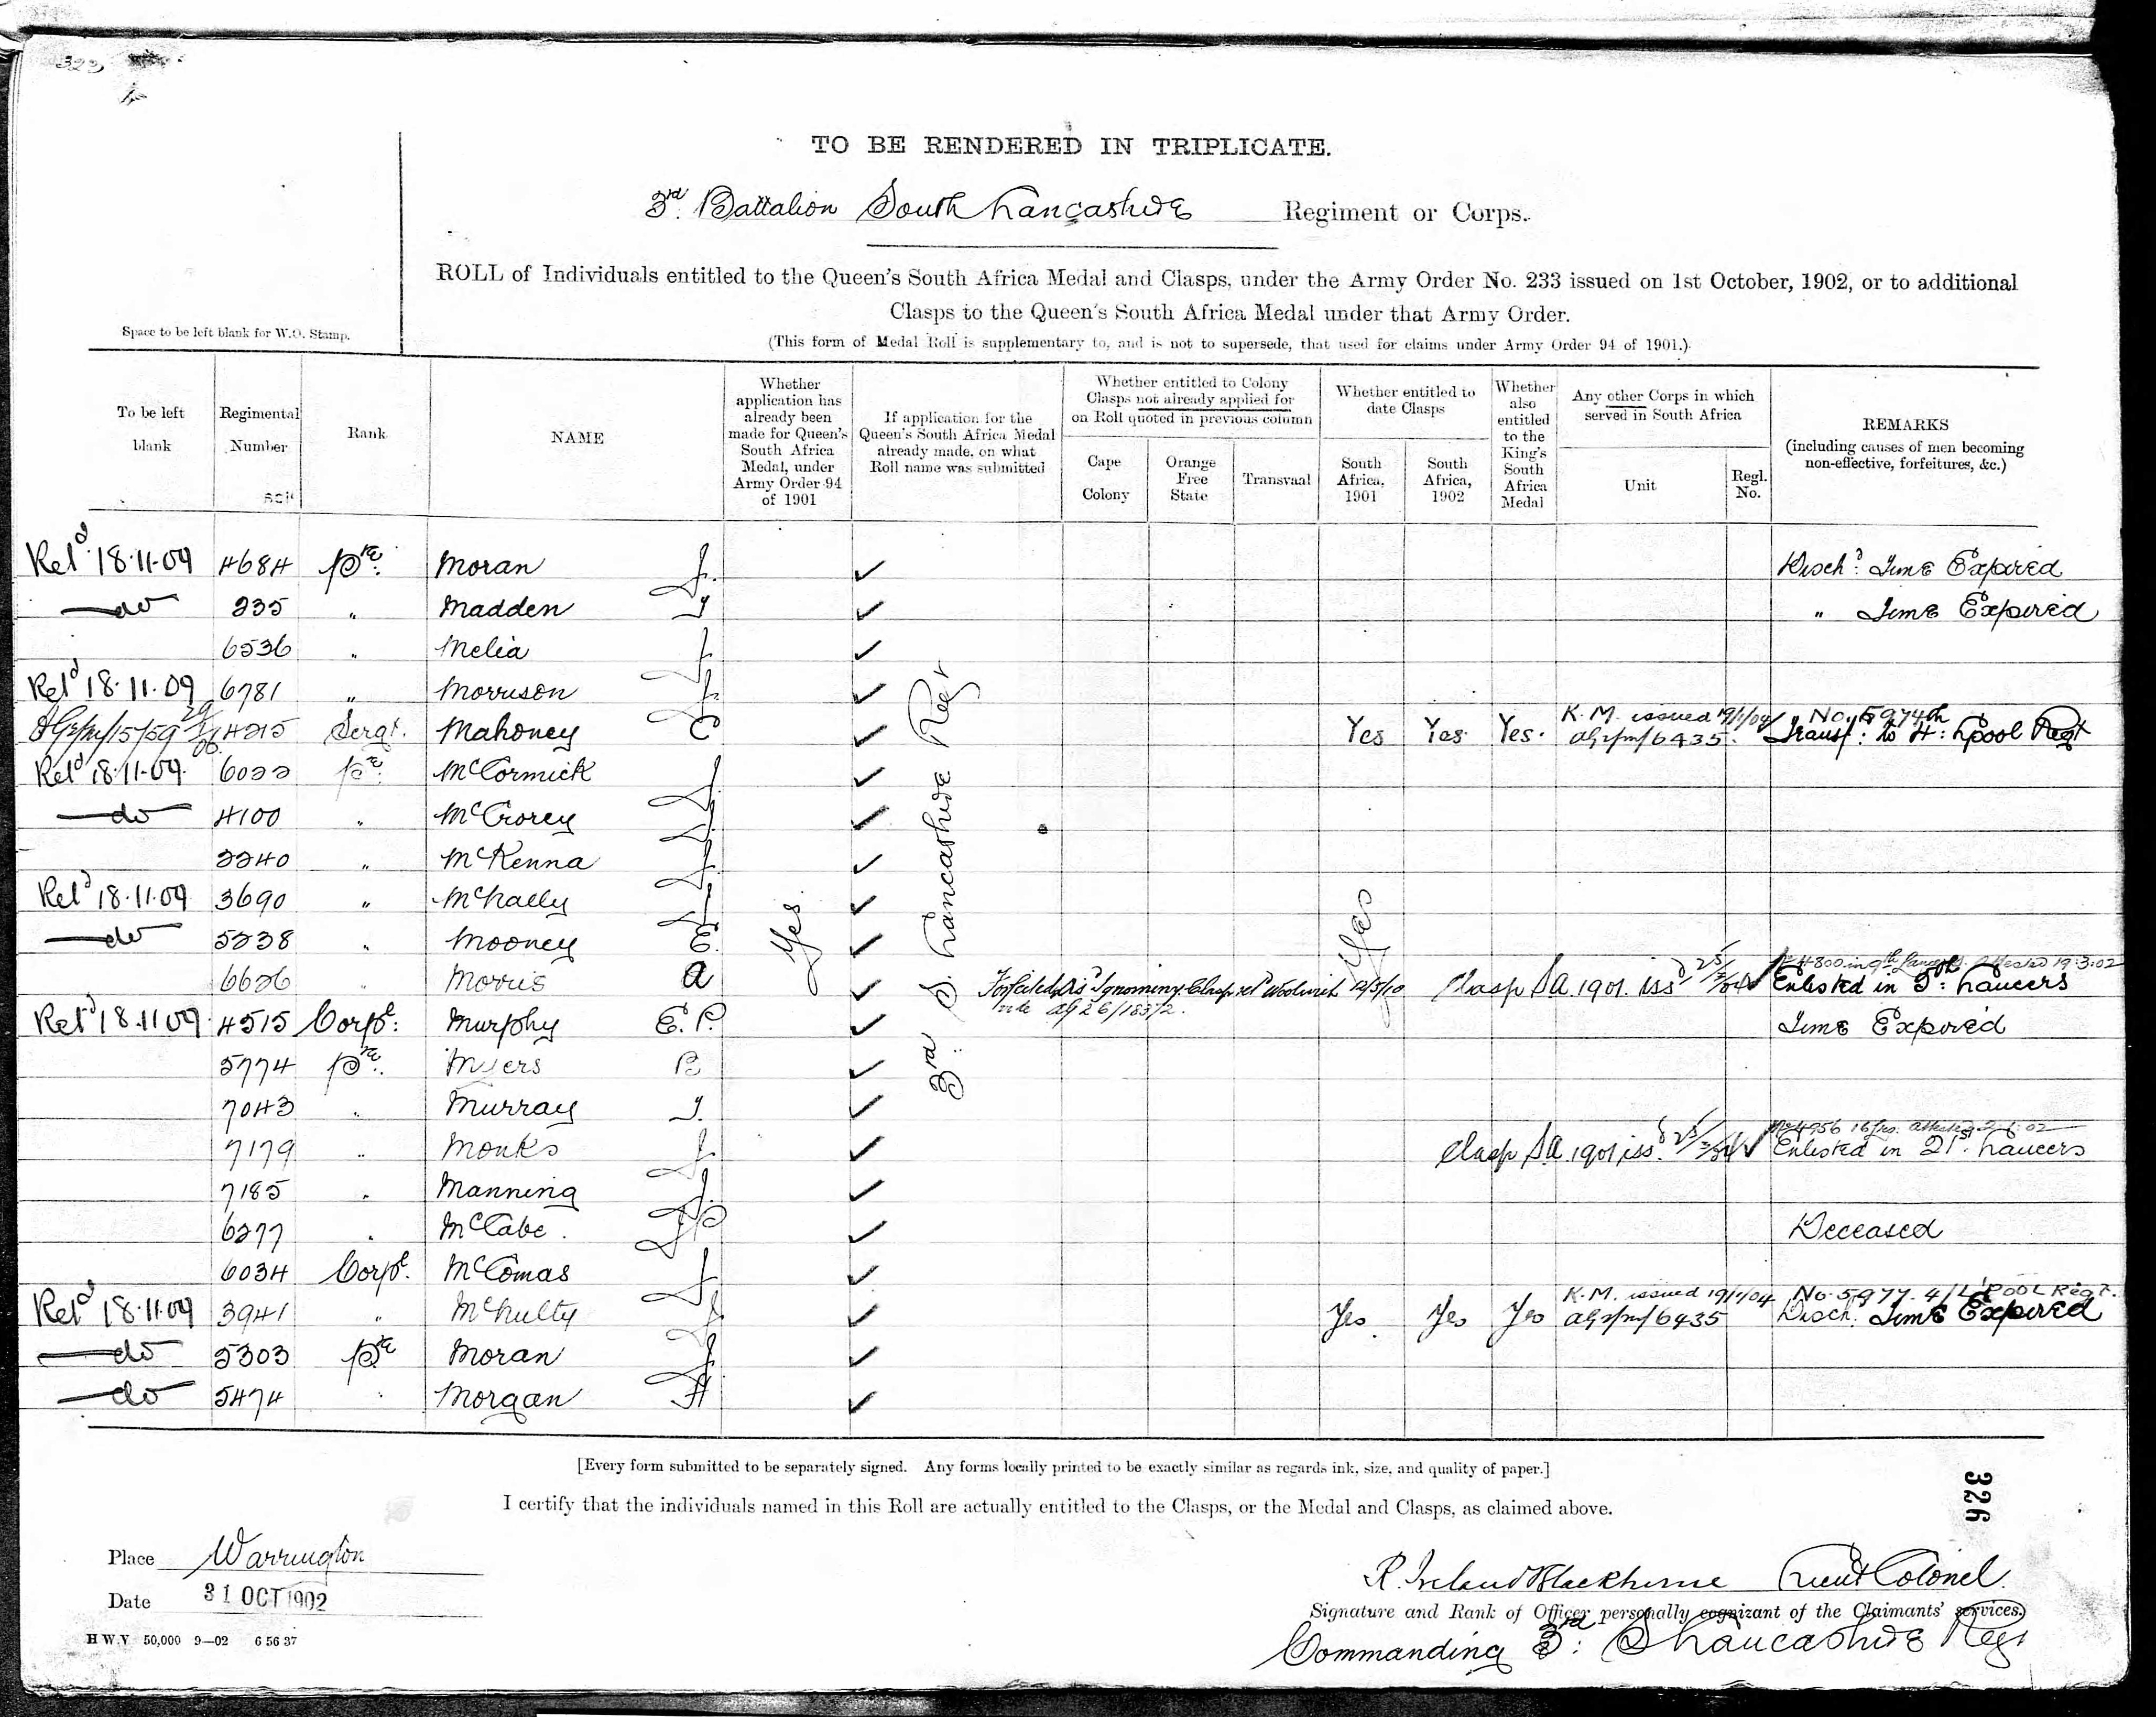 323
TO BE RENDERED IN TRIPLICATE.
3rd. Battalion South Lancashire Regiment or Corps.
ROLL of Individuals entitled to the Queen's South Africa Medal and Clasps, under the Army Order No. 233 issued on 1st October, 1902, or to additional
Clasps to the Queen's South Africa Medal under that Army Order.
Space to be left blank for W.O. Stamp.
(This form of Medal Roll is supplementary to, and is not to supersede, that used for claims under Army Order 94 of 1901.)
To be left blank
Regimental Number
Rank
NAME
Whether application has already been made for Queen's South Africa Medal, under Army Order 94 of 1901
If application for the Queen's South Africa Medal already made, on what Roll name was submitted
Whether entitled to Colony Clasps not already applied for on Roll quoted in previous column
Cape Colony
Orange Free State
Transvaal
Whether entitled to date Clasps
South Africa, 1901
South Africa, 1902
Whether also entitled to the King's South Africa Medal
Any other Corps in which served in South Africa
Unit
Regl. No.
REMARKS
(including causes of men becoming non-effective, forfeitures, &c.)
Retd 18.11.09 4684 Pte. Moran J. ✓ Disch'd. Time Expired
do 235 " Madden T ✓ " Time Expired
6536 " Melia J ✓
Retd 18.11.09 6781 " Morrison J. ✓
4215 Sergt. Mahoney C ✓ Yes Yes Yes. K.M. issued 19/1/04 No. 5974
6435. Transf: to 4th: Lpool Regt
Retd 18.11.09. 6022 Pte. McCormick J ✓
do 4100 " McCrorey J ✓
2240 " McKenna J ✓
Retd 18.11.09 3690 " McNally J ✓
do 5238 " Mooney E. ✓
6626 " Morris A ✓ Clasp SA. 1901. issd 25/3/04 ✓ Enlisted in 5th: Lancers
Retd 18.11.09 4515 Corpl: Murphy E.P. ✓ Time Expired
5774 Pte. Myers B ✓
7043 " Murray T. ✓
7179 " Monks J. ✓ Clasp SA 1901 issd. 25/3/04 ✓ Enlisted in 21st. Lancers
7185 " Manning J. ✓
6277 " McCabe. JP ✓ Deceased
6034 Corpl. McComas J ✓
Retd 18.11.09 3941 " McNulty J ✓ Yes. Yes Yes K.M. issued 19/1/04 No. 5977. 4/L'POOL Regt.
6435 Disch. Time Expired
do 5303 Pte Moran J ✓
do 5474 " Morgan H ✓
Yes.
3rd: S. Lancashire Regt
Yes
[Every form submitted to be separately signed. Any forms locally printed to be exactly similar as regards ink, size, and quality of paper.]
I certify that the individuals named in this Roll are actually entitled to the Clasps, or the Medal and Clasps, as claimed above.
326
Place Warrington
Date 31 OCT 1902
R. Ireland Blackburne Lieut Colonel.
Signature and Rank of Officer personally cognizant of the Claimants' services.
Commanding 3rd: S Lancashire Regt
H W V 50,000 9—02 6 56 37